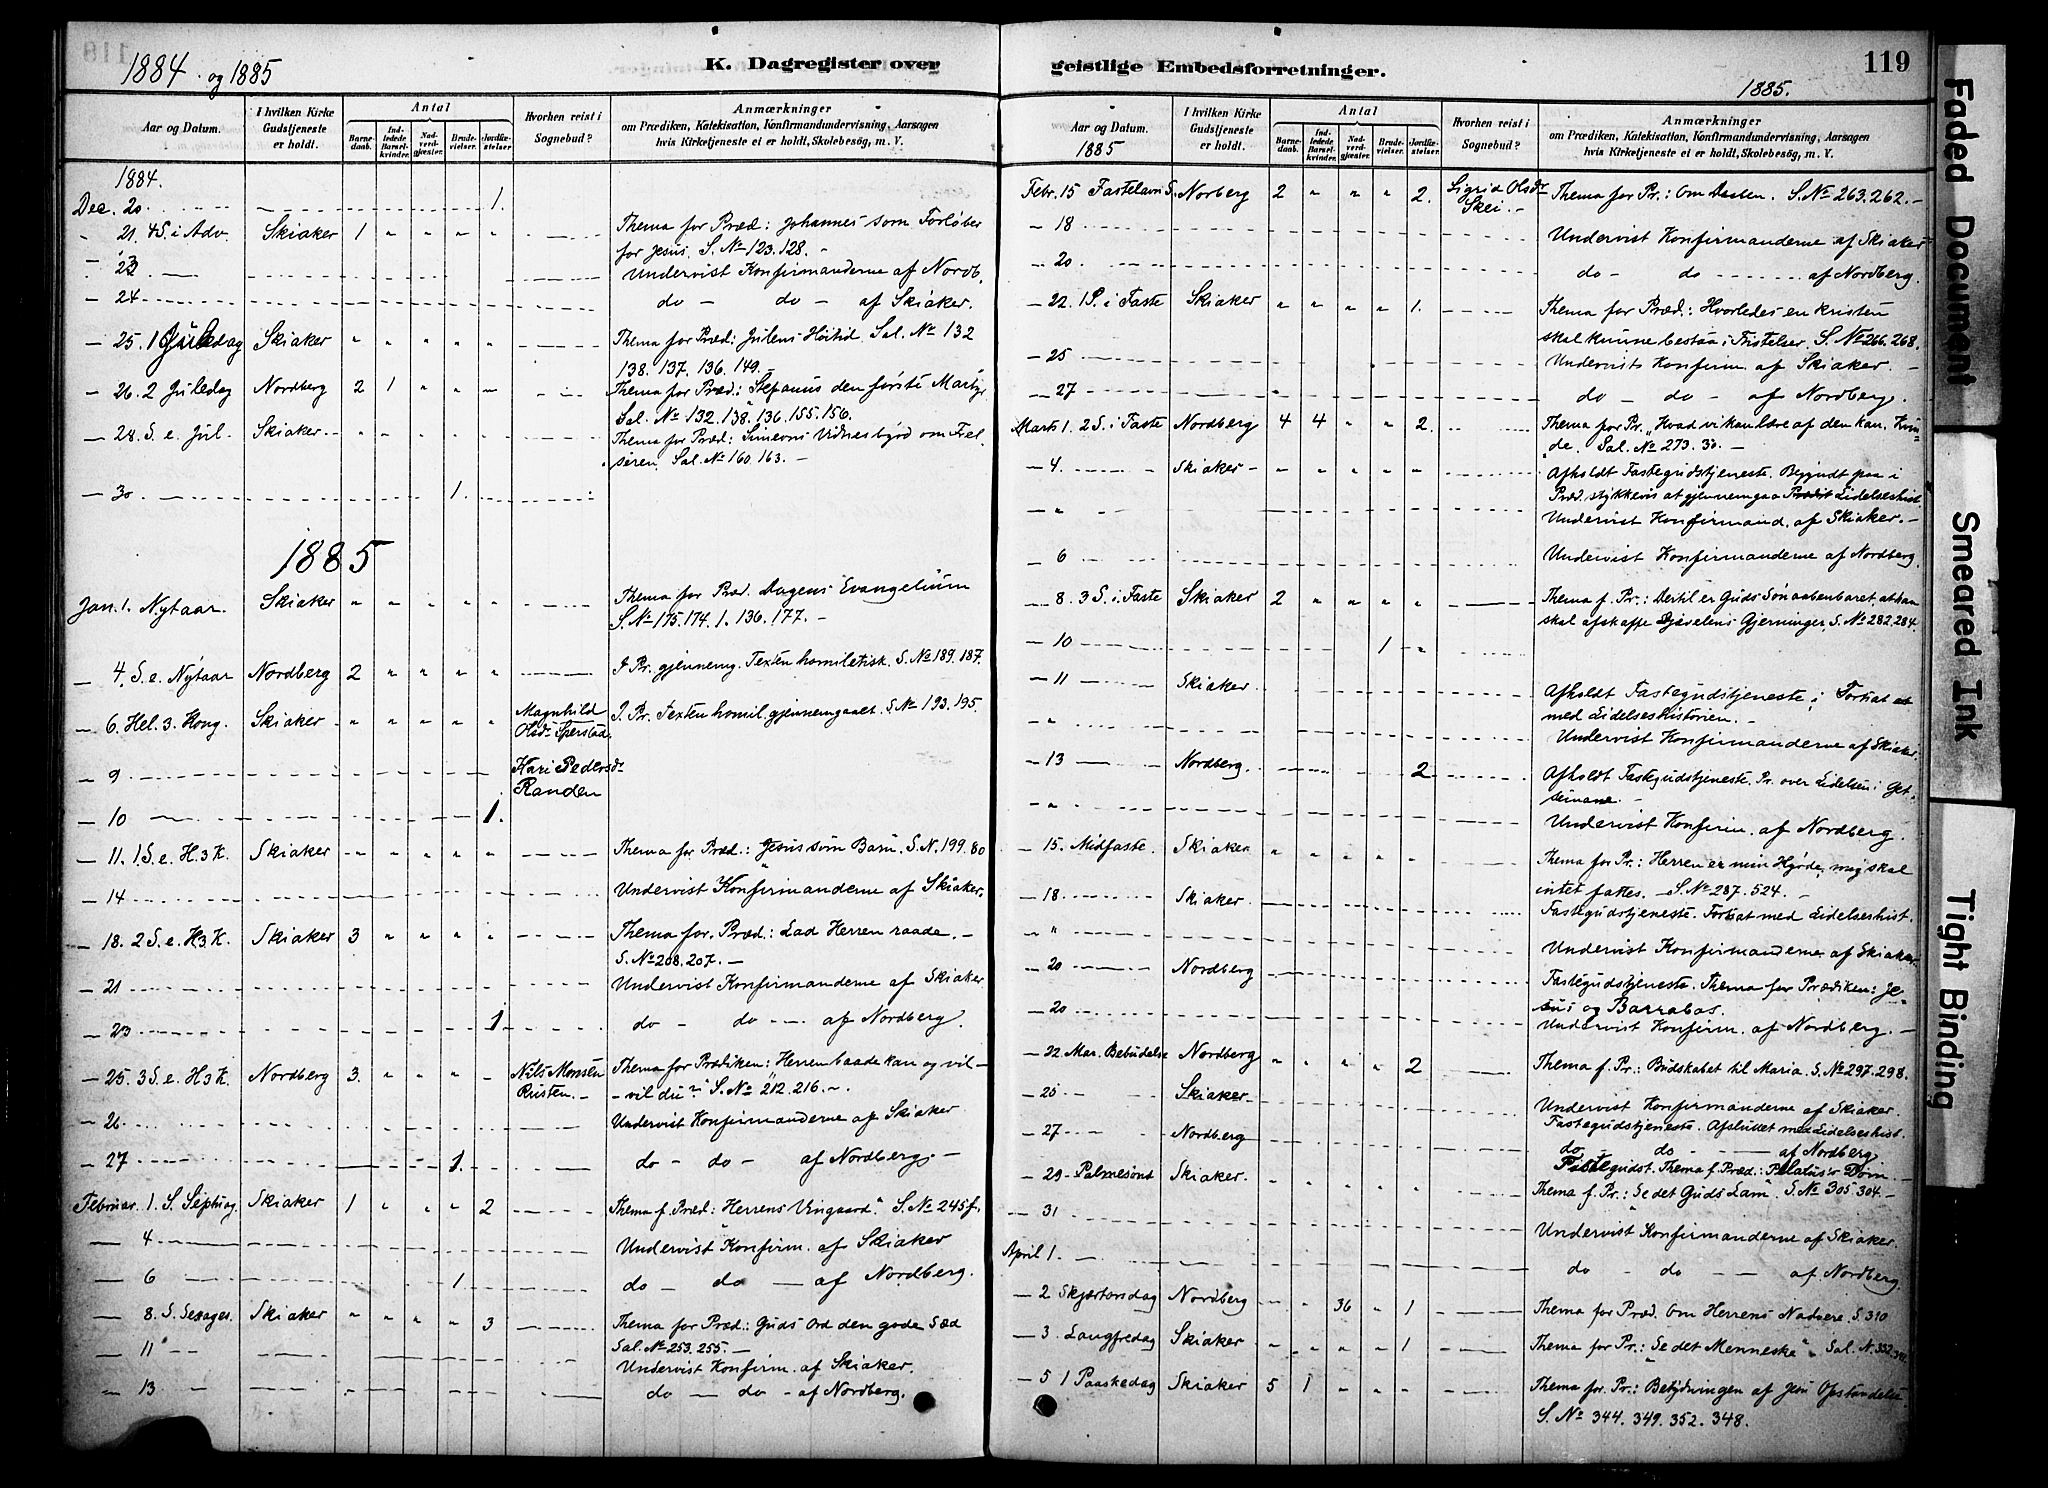 1884 og 1885
K. Dagregister over
Aar og Datum.
I hvilken Kirke Gudstjeneste er holdt.
Antal
Barnedaab.
Indledede Barselkvinder.
Nadverdgjæster.
Brudevielser.
Jordfæstelser.
Hvorhen reist i Sognebud?
Anmærkninger
om Prædiken, Katekisation, Konfirmandundervisning, Aarsagen
hvis Kirketjeneste ei er holdt, Skolebesøg, m. V.
1884.
Dec. 20. 1.
" 21. 4 S. i Adv. Skiaker 1 " " " " Thema for Præd: Johannes som Forløber
for Jesus. S. No 123. 128. -
- 23 — Undervist Konfirmanderne af Nordb.
- 24 do - do - af Skiaker.
- 25. 1 Juledag Skiaker " " " " " Thema for Præd: Julens Høitid. Sal. No 132
138. 137. 136. 149. -
- 26. 2 Juledag Nordberg 2 1 " " — Thema for Præd: Stefanus den første Martyr
Sal. No 132. 138. 136. 155. 156.
- 28. S. e. Jul. Skiaker. " " " " " Thema for Præd: Simeons Vidnesbyrd om Frel-
seren. Sal. No 160. 163. -
- 30 1.
1885
Jan. 1. Nytaar. Skiaker " " " " " Thema for Præd. Dagens Evangelium
S. No 175. 174. 1. 136. 177. -
- 4. S. e. Nytaar Nordberg 2 " " " " I Pr. gjennemg. Texten homiletisk. S. No 189. 187.
- 6. Hel. 3. Kong. Skiaker " " " " " Magnhild I. Pr. Texten homil. gjennemgaaet. S. No 193. 195.
Olsdr Sperstad.
- 9 Kari Pedersdr
Randen
- 10 1.
- 11. 1 S. e. H. 3 K. Skiaker " " " " " Thema for Præd.: Jesus som Barn. S. N. 199. 80
- 14 Undervist Konfirmanderne af Skiaker.
- 18. 2 S. e. H 3 K. Skiaker 3 " " " " Thema for. Præd.: Lad Herren raade. -
S. No 208. 207. —
- 21 Undervist Konfirmanderne af Skiaker
- 23 1 do - do — af Nordberg.
- 25. 3 S. e. H 3 K. Nordberg 3. " " " - Nils Monsen Thema for Prædiken: Herren baade kan og vil -
Risten. - - vil du?" S. No 212. 216. -
- 26. Undervist Konfirmanderne af Skiaker
- 27 1. do - do - af Nordberg. -
Februar. 1. S. Septuag. Skiaker 1 " " " 2 Thema f. Præd: Herrens Vingaard." S. No 245 f.
— 4 Undervist Konfirm. af Skiaker
— 6 1. do — do — af Nordberg.
— 8. S. Sexages. Skiaker " " " " 3 Thema for Præd.: Guds Ord den gode Sæd
Sal. No 253. 255. —
— 11 Undervist Konfirm. af Skiaker.
— 13 do — do - af Nordberg.
geistlige Embedsforretninger.
119
1885.
Aar og Datum.
1885
I hvilken Kirke Gudstjeneste er holdt.
Antal
Barnedaab.
Indledede Barselkvinder.
Nadverdgjæster.
Brudevielser.
Jordfæstelser.
Hvorhen reist i Sognebud?
Anmærkninger
om Prædiken, Katekisation, Konfirmandundervisning, Aarsagen
hvis Kirketjeneste ei er holdt, Skolebesøg, m. V.
Febr. 15 Fastelavn S. Norberg 2 " " " 2. Sigrid Olsdr Thema for Pr.: Om Daaben. S. No 263. 262. -
Skei. -
- 18 Undervist Konfirmanderne af Skiaker
- 20 do - do af Nordberg.
- 22. 1 S. i Faste Skiaker " " " " 1. Thema for Præd.: Hvorledes en kristen
skal kunne bestaa i Fristelser. S. No 266. 268.
- 25 Undervits Konfirm. af Skiaker. -
- 27 do - do - af Nordberg.
Marts 1. 2 S. i Faste Nordberg 4 4 " " 2. Thema for Pr. "Hvad vi kan lære af den kan. Kvin-
de. Sal. No 273. 30. -
- 4. Skiaker - " " " " " Afholdt Fastegudstjeneste. Begyndt paa i
Præd. stykkevis at gjennemgaa Lidelseshist.
- " Undervist Konfirmand. af Skiaker. -
6 Undervist Konfirmanderne af Nordberg.
- 8. 3 S. i. Faste Skiaker 2 " " " " Thema f. Pr.: Dertil er Guds Søn aabenbaret, at han
skal afskaffe Djævelens Gjerninger. S. No 282. 284.
- 10 1 "
- 11 Skiaker. Afholdt Fastegudstjeneste; Fortsat
med Lidelseshistorien. -
- " Undervist Konfirmanderne af Skiaker.
- 13 Nordberg. 2 Afholdt Fastegudstjeneste. Pr. over Lidelsen i Get-
semane. -
- " Undervist Konfirm. af Nordberg.
- 15. Midfaste. Skiaker " " " " " Thema for Pr.: Herren er min Hyrde, mig skal
intet fattes. - S. No 287. 524. -
- 18. Skiaker. Fastegudstjeneste. Fortsat med Lidelseshist.
- " Undervist Konfirmanderne af Skiaker.
- 20 Nordberg Fastegudstjeneste. Thema for Prædiken: Je-
sus og Barrabas.
- 20 Undervist Konfirm. af Nordberg. -
- 22. Mar. Bebudelse Nordberg " " " " 2 Thema f. Pr.: Budskabet til Maria. S. No 297. 298.
- 25 Skiaker. Undervist Konfirmanderne af Skiaker.
Fastegudstjeneste. Afsluttet med Lidelseshist.
- 27 Nordberg do do - af Nordberg
Fastegudst. Thema f. Præd.: Pilatus's Dom.
- 29 - Palmesønt Skiaker. " " " " " Thema f. Pr.: Se det Guds Lam". S. No 305. 304. -
- 31 Undervist Konfirmanderne af Skiaker.
April 1. do - do - af Nordberg.
- 2 Skjærtorsdag Nordberg " " 36 " 1 Thema for Præd. Om Herrens Nadvere. S. 310
- 3. Langfredag Skiaker " " " " 1 Thema for Pr.: Se det Menneske" Sal. N. 332.
- 5 1 Paaskedag Skiaker 5 1 " " " Thema for. Pr.: Betydningen af Jesu Opstandelse
S. No 344. 349. 352. 348.
Faded Document
Smeared Ink
Tight Binding